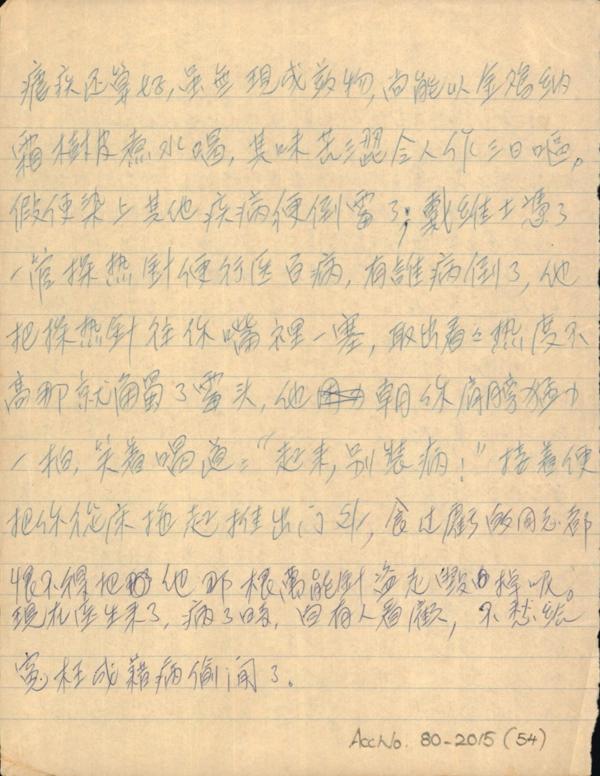 瘧疾还算好,虽无現成药物,尚能以金鸡纳
霜樹皮煮水喝,其味苦澀令人作三日嘔。
假使染上其他疾病便倒霉了;戴维士憑了
一管探热針便行医百病,有誰病倒了,他
把探热針往你嘴裡一塞,取出看看热度不
高那就触了霉头,他朝你肩膀猛力
一拍,笑着喝道:“起来,别装病!”接着便
把你從床拖起推出门外,食过虧的同志都
恨不得把他那根萬能針盗走毁掉呢。
現在医生来了,病了時,自有人看顧,不愁给
寃枉成藉病偷闲了。
Acc No. 80-2015 (54)